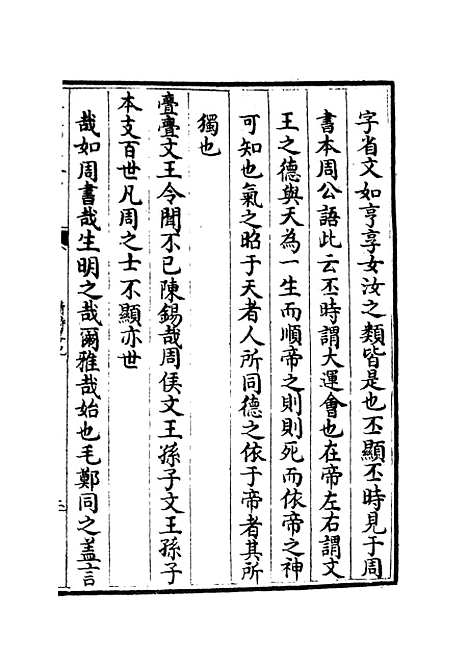 字省文如亨享女汝之類皆是也丕顯丕時見于周
書本周公語此云丕時謂大運會也在帝左右謂文
王之德與天為一生而順帝之則則死而依帝之神
可知也氣之昭于天者人所同德之依于帝者其所
獨也
亹亹文王令聞不已陳錫哉周侯文王孫子文王孫子
本支百世凡周之士不顯亦世
哉如周書哉生明之哉爾雅哉始也毛鄭同之蓋言